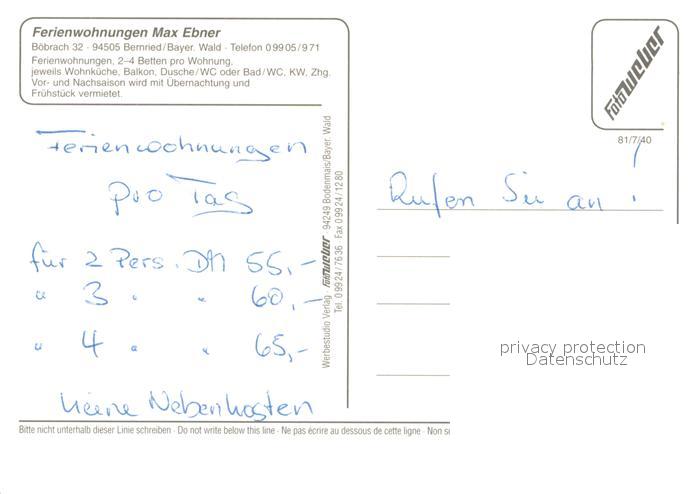 Ferienwohnungen Max Ebner
Böbrach 32 · 94505 Bernried/Bayer. Wald · Telefon 09905/971
Ferienwohnungen, 2–4 Betten pro Wohnung,
jeweils Wohnküche, Balkon, Dusche/WC oder Bad/WC, KW, Zhg.
Vor- und Nachsaison wird mit Übernachtung und
Frühstück vermietet.
Ferienwohnungen
pro Tag
für 2 Pers. DM 55,–
" 3 " " 60,–
" 4 " " 65,–
keine Nebenkosten
Werbestudio Verlag · Foto weber · 94249 Bodenmais/Bayer. Wald
Tel. 09924/7636 Fax 09924/1280
Foto weber
81/7/40
Rufen Sie an !
privacy protection
Datenschutz
Bitte nicht unterhalb dieser Linie schreiben · Do not write below this line · Ne pas écrire au dessous de cette ligne · Non s